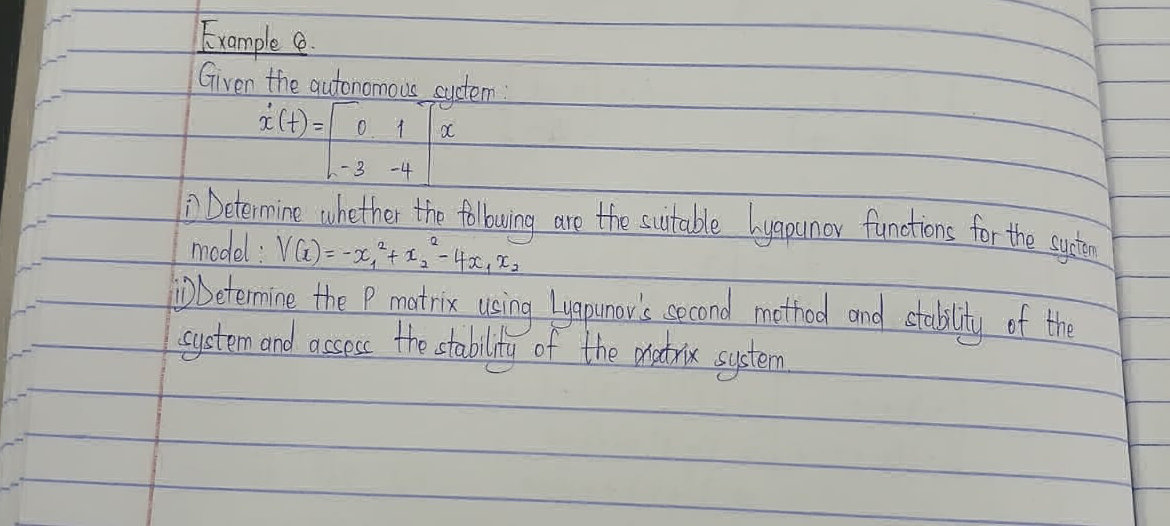 Example Q.
Given the autonomous system:
ẋ(t) = [ 0 1 ] x
-3 -4
i) Determine whether the following are the suitable Lyapunov functions for the system
model: V(x) = -x₁² + x₂² - 4x₁x₂
ii) Determine the P matrix using Lyapunov's second method and stability of the
system and assess the stability of the matrix system.